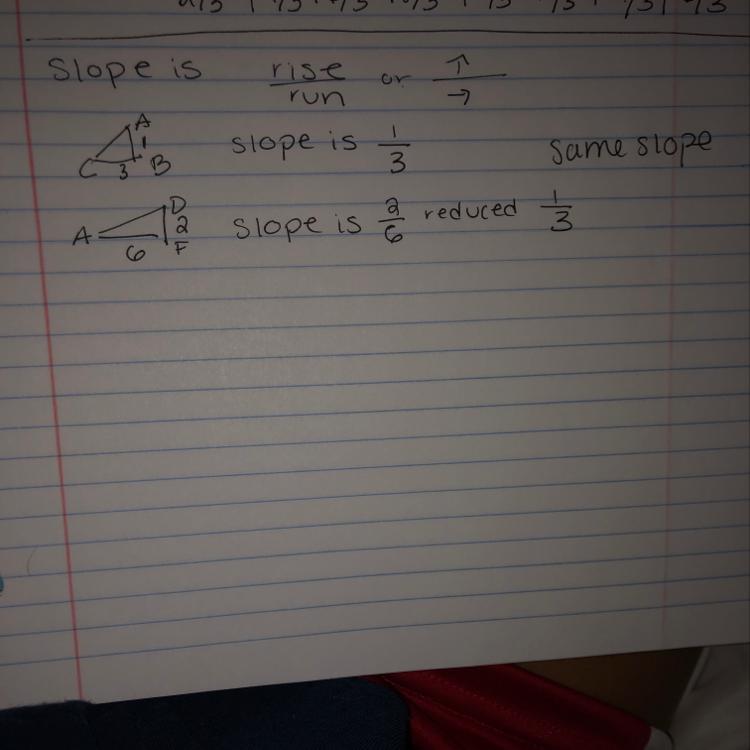 Slope is rise/run or ↑/→
A
1
C 3 B
slope is 1/3 same slope
D
A 2
6 F
slope is 2/6 reduced 1/3